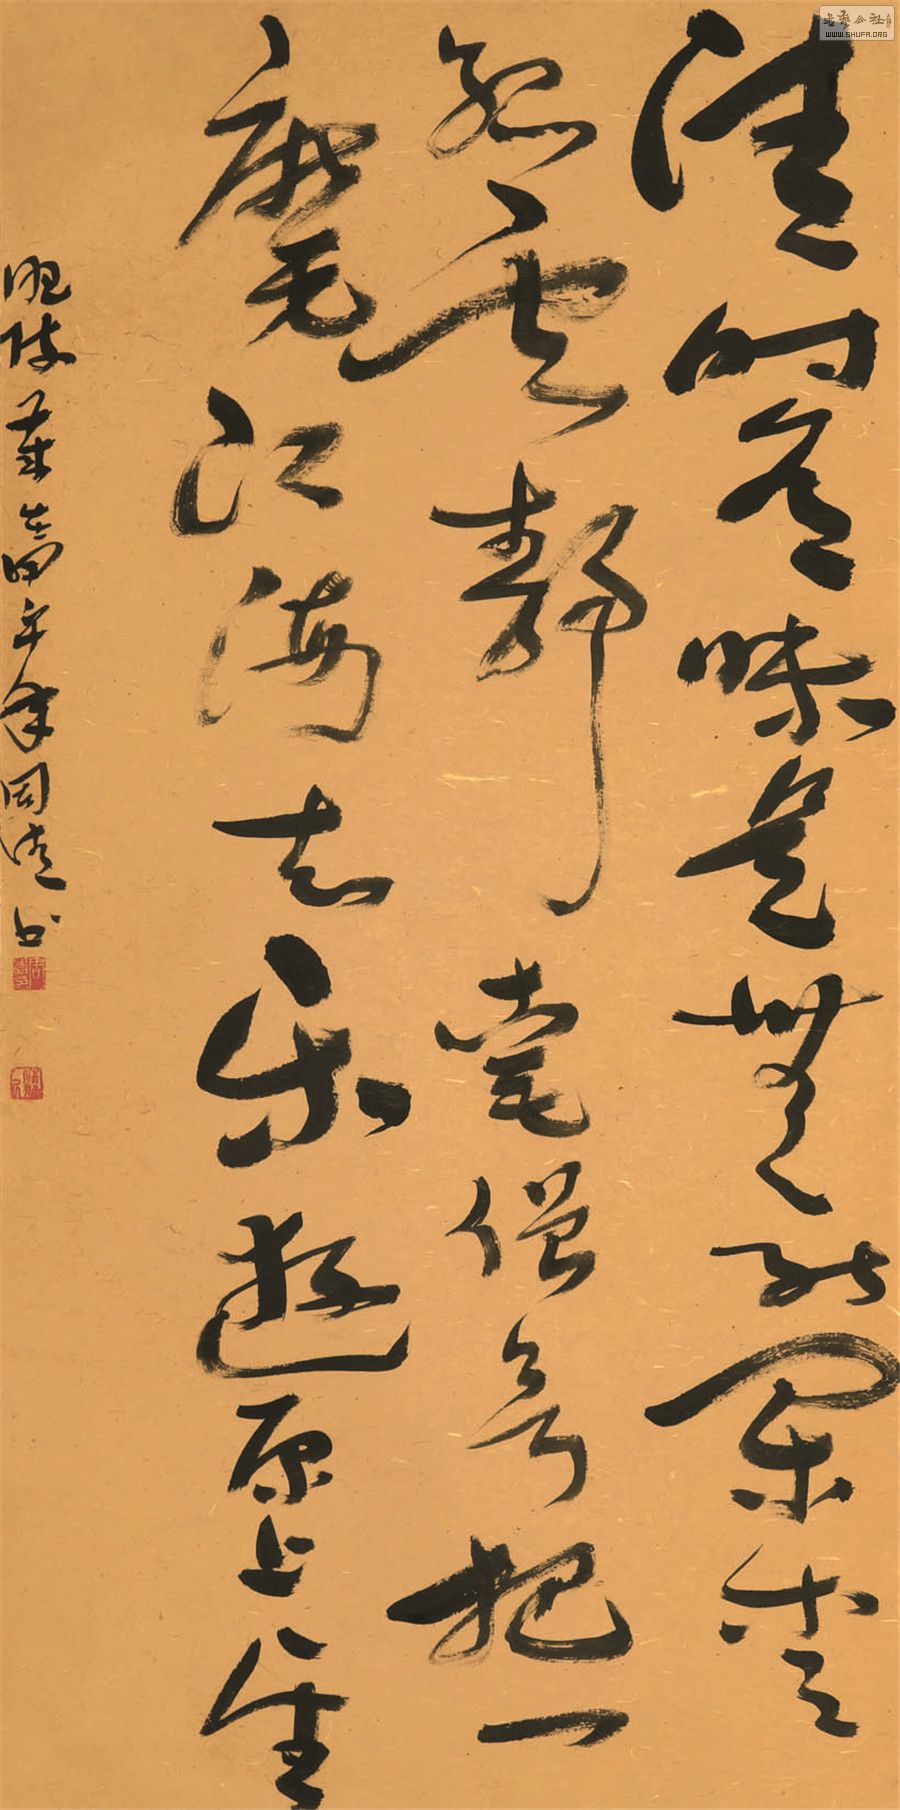 清时有味是無能闲爱
孤云静爱僧欲把一
麾江海去乐遊原上望
昭陵 歲在甲午年周书
书艺公社
WWW.SHUFA.ORG